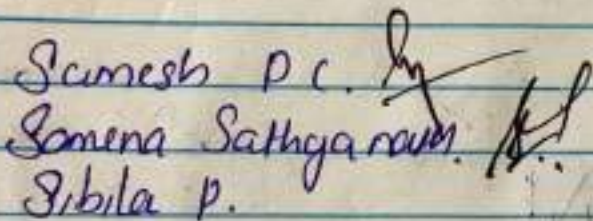 Samesh P C.
Somena Sathyanath.
Sibila P.